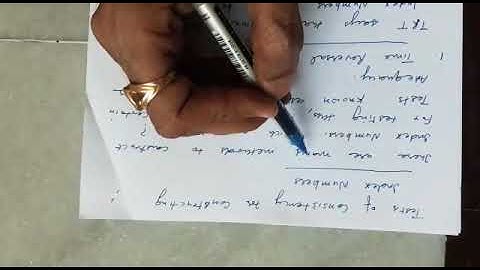 Tests of Consistency for Constructing
Index Numbers
There are many methods to construct
Index Numbers.
For testing this,
Tests known
Adequacy.
1. Time Reversal
TRT says
Index Numbers